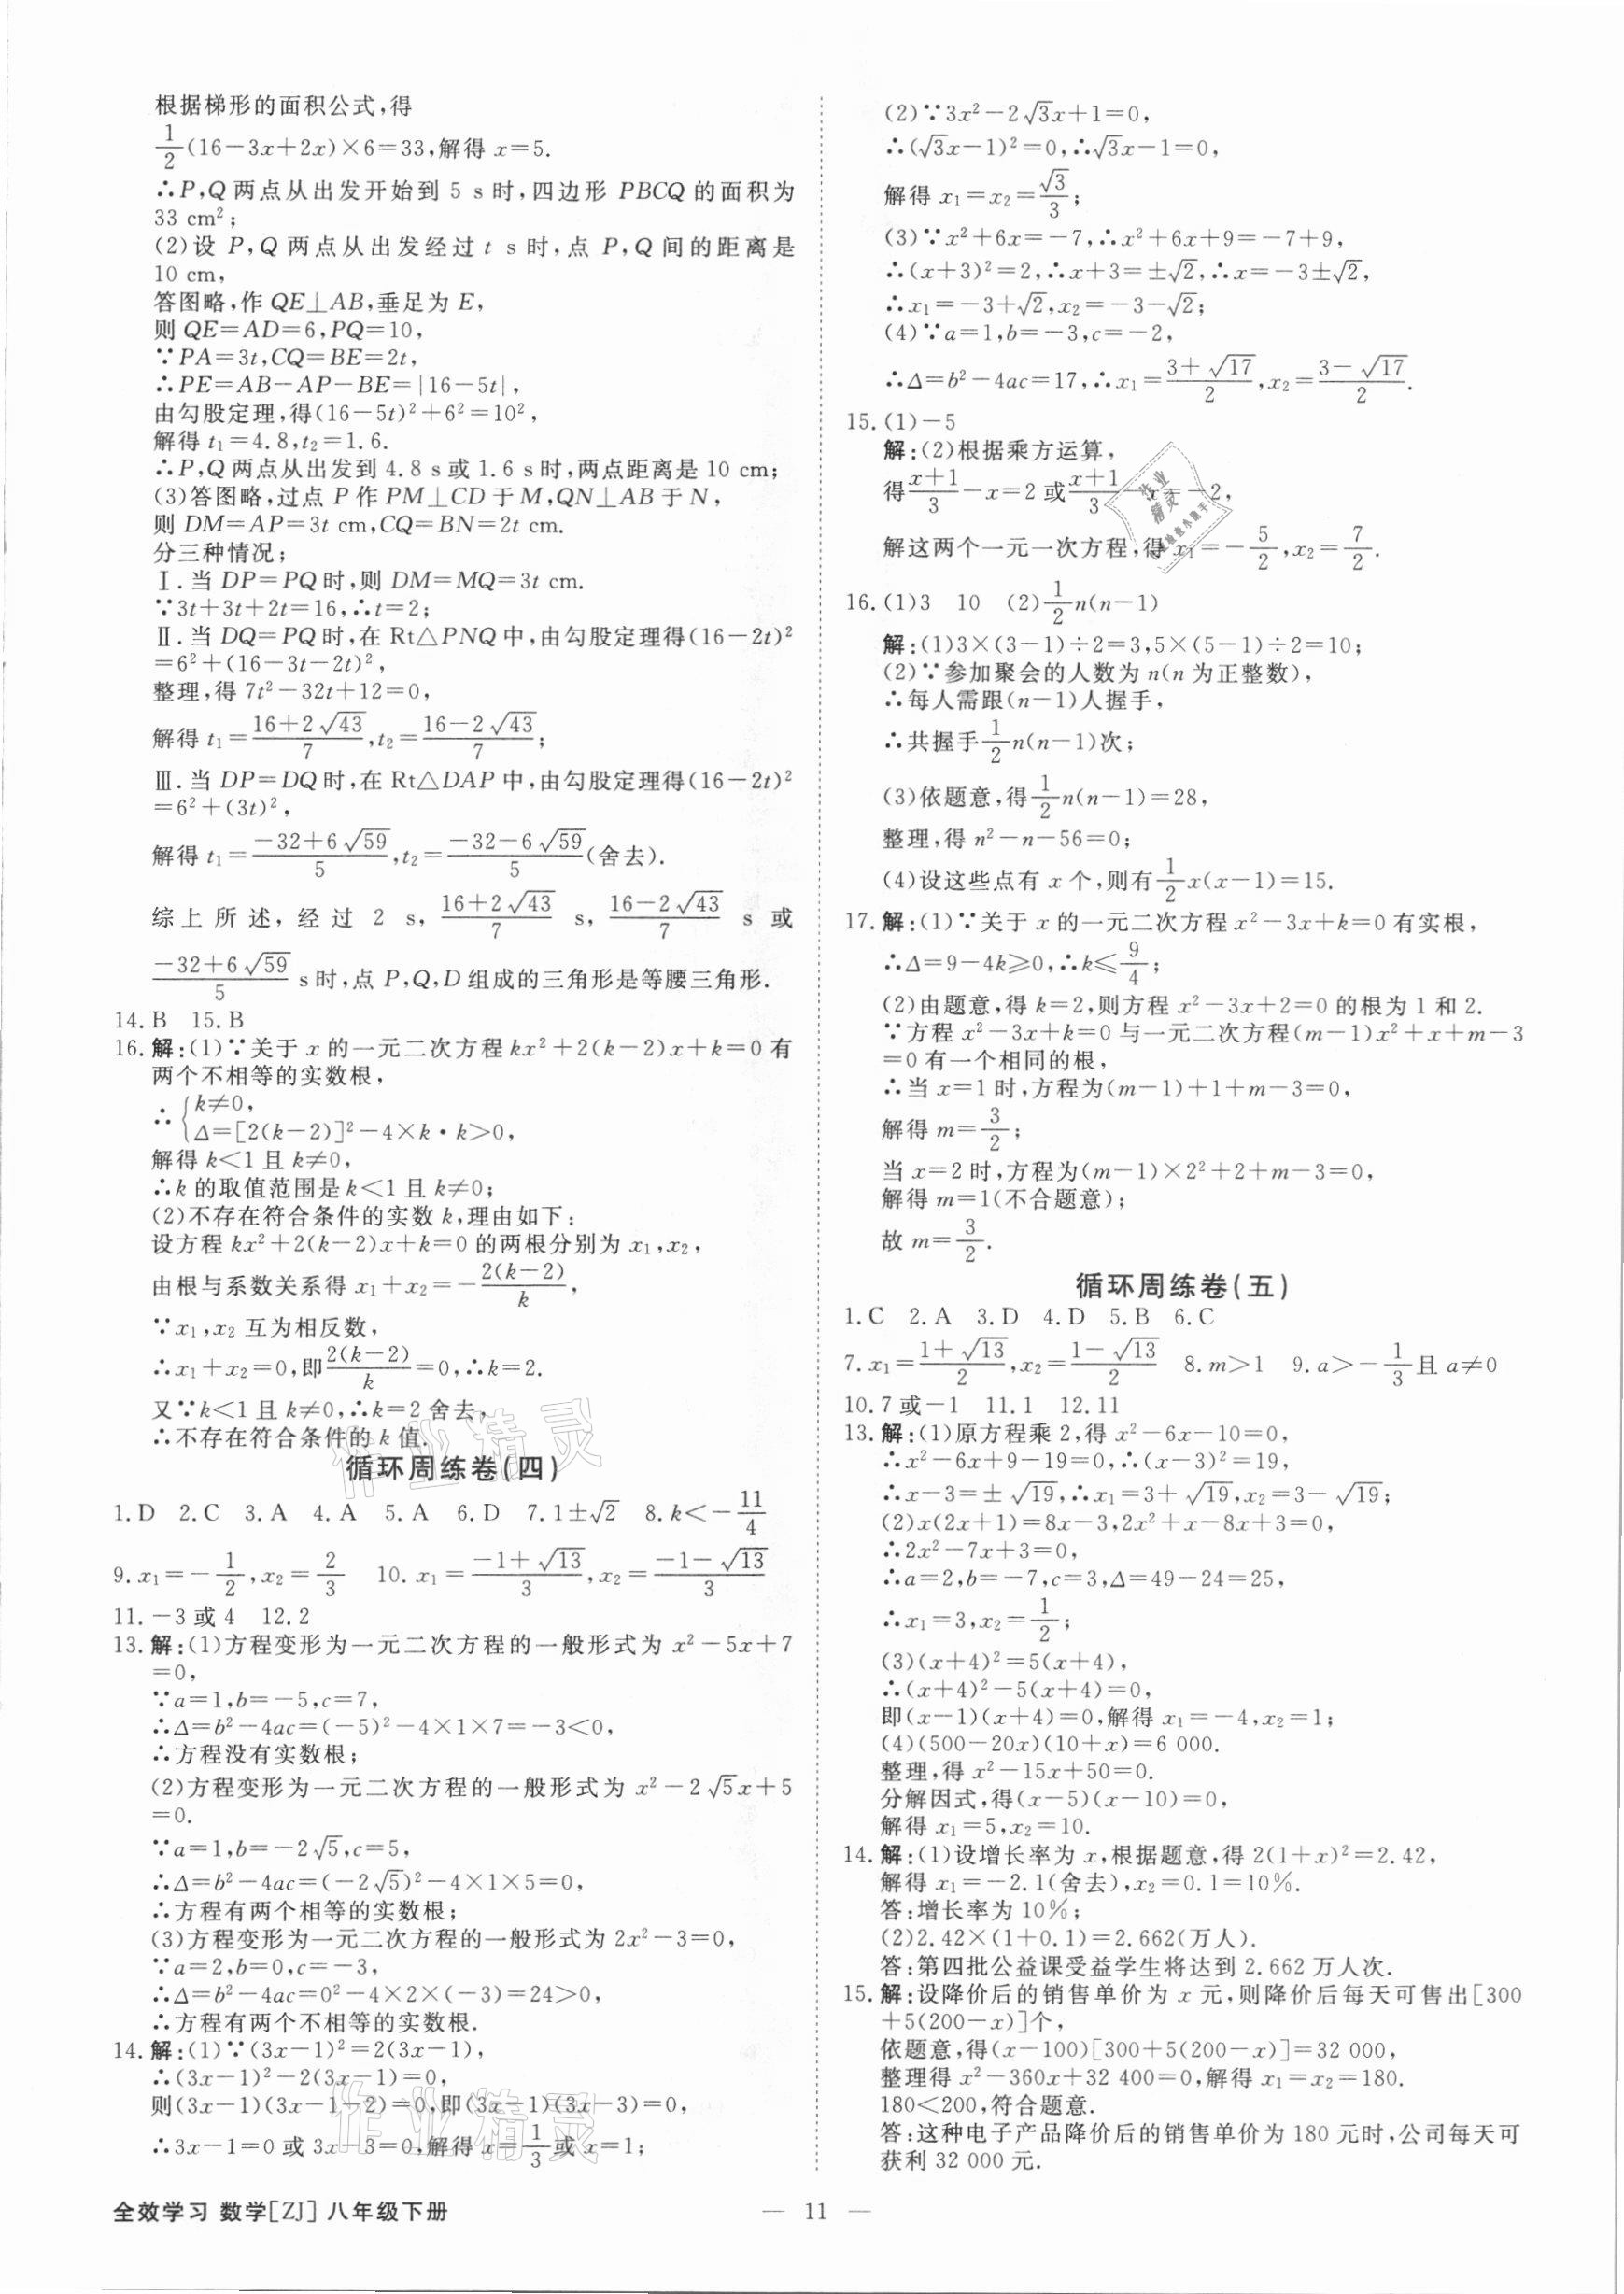 根据梯形的面积公式,得
$\frac{1}{2}$(16-3x+2x)×6=33,解得 x=5.
∴P,Q 两点从出发开始到 5 s 时,四边形 PBCQ 的面积为
33 cm²;
(2)设 P,Q 两点从出发经过 t s 时,点 P,Q 间的距离是
10 cm,
答图略,作 QE⊥AB,垂足为 E,
则 QE=AD=6,PQ=10,
∵PA=3t,CQ=BE=2t,
∴PE=AB-AP-BE=|16-5t|,
由勾股定理,得(16-5t)²+6²=10²,
解得 t₁=4.8,t₂=1.6.
∴P,Q 两点从出发到 4.8 s 或 1.6 s 时,两点距离是 10 cm;
(3)答图略,过点 P 作 PM⊥CD 于 M,QN⊥AB 于 N,
则 DM=AP=3t cm,CQ=BN=2t cm.
分三种情况;
Ⅰ.当 DP=PQ 时,则 DM=MQ=3t cm.
∵3t+3t+2t=16,∴t=2;
Ⅱ.当 DQ=PQ 时,在 Rt△PNQ 中,由勾股定理得(16-2t)²
=6²+(16-3t-2t)²,
整理,得 7t²-32t+12=0,
解得 t₁=$\frac{16+2\sqrt{43}}{7}$,t₂=$\frac{16-2\sqrt{43}}{7}$;
Ⅲ.当 DP=DQ 时,在 Rt△DAP 中,由勾股定理得(16-2t)²
=6²+(3t)²,
解得 t₁=$\frac{-32+6\sqrt{59}}{5}$,t₂=$\frac{-32-6\sqrt{59}}{5}$(舍去).
综上所述,经过 2 s,$\frac{16+2\sqrt{43}}{7}$ s,$\frac{16-2\sqrt{43}}{7}$ s 或
$\frac{-32+6\sqrt{59}}{5}$ s时,点 P,Q,D 组成的三角形是等腰三角形.
14.B 15.B
16.解:(1)∵关于 x 的一元二次方程 kx²+2(k-2)x+k=0 有
两个不相等的实数根,
∴{k≠0,
Δ=[2(k-2)]²-4×k·k>0,
解得 k<1 且 k≠0,
∴k 的取值范围是 k<1 且 k≠0;
(2)不存在符合条件的实数 k,理由如下:
设方程 kx²+2(k-2)x+k=0 的两根分别为 x₁,x₂,
由根与系数关系得 x₁+x₂=-$\frac{2(k-2)}{k}$,
∵x₁,x₂ 互为相反数,
∴x₁+x₂=0,即$\frac{2(k-2)}{k}$=0,∴k=2.
又∵k<1 且 k≠0,∴k=2 舍去,
∴不存在符合条件的 k 值.
循环周练卷(四)
1.D 2.C 3.A 4.A 5.A 6.D 7.1±√2 8.k<-$\frac{11}{4}$
9.x₁=-$\frac{1}{2}$,x₂=$\frac{2}{3}$ 10.x₁=$\frac{-1+\sqrt{13}}{3}$,x₂=$\frac{-1-\sqrt{13}}{3}$
11.-3 或 4 12.2
13.解:(1)方程变形为一元二次方程的一般形式为 x²-5x+7
=0,
∵a=1,b=-5,c=7,
∴Δ=b²-4ac=(-5)²-4×1×7=-3<0,
∴方程没有实数根;
(2)方程变形为一元二次方程的一般形式为 x²-2√5x+5
=0.
∵a=1,b=-2√5,c=5,
∴Δ=b²-4ac=(-2√5)²-4×1×5=0,
∴方程有两个相等的实数根;
(3)方程变形为一元二次方程的一般形式为 2x²-3=0,
∵a=2,b=0,c=-3,
∴Δ=b²-4ac=0²-4×2×(-3)=24>0,
∴方程有两个不相等的实数根.
14.解:(1)∵(3x-1)²=2(3x-1),
∴(3x-1)²-2(3x-1)=0,
则(3x-1)(3x-1-2)=0,即(3x-1)(3x-3)=0,
∴3x-1=0 或 3x-3=0,解得 x=$\frac{1}{3}$或 x=1;
(2)∵3x²-2√3x+1=0,
∴(√3x-1)²=0,∴√3x-1=0,
解得 x₁=x₂=$\frac{\sqrt{3}}{3}$;
(3)∵x²+6x=-7,∴x²+6x+9=-7+9,
∴(x+3)²=2,∴x+3=±√2,∴x=-3±√2,
∴x₁=-3+√2,x₂=-3-√2;
(4)∵a=1,b=-3,c=-2,
∴Δ=b²-4ac=17,∴x₁=$\frac{3+\sqrt{17}}{2}$,x₂=$\frac{3-\sqrt{17}}{2}$.
15.(1)-5
解:(2)根据乘方运算,
得$\frac{x+1}{3}$-x=2 或$\frac{x+1}{3}$-x=-2,
解这两个一元一次方程,得 x₁=-$\frac{5}{2}$,x₂=$\frac{7}{2}$.
16.(1)3 10 (2)$\frac{1}{2}$n(n-1)
解:(1)3×(3-1)÷2=3,5×(5-1)÷2=10;
(2)∵参加聚会的人数为 n(n 为正整数),
∴每人需跟(n-1)人握手,
∴共握手$\frac{1}{2}$n(n-1)次;
(3)依题意,得$\frac{1}{2}$n(n-1)=28,
整理,得 n²-n-56=0;
(4)设这些点有 x 个,则有$\frac{1}{2}$x(x-1)=15.
17.解:(1)∵关于 x 的一元二次方程 x²-3x+k=0 有实根,
∴Δ=9-4k≥0,∴k≤$\frac{9}{4}$;
(2)由题意,得 k=2,则方程 x²-3x+2=0 的根为 1 和 2.
∵方程 x²-3x+k=0 与一元二次方程(m-1)x²+x+m-3
=0 有一个相同的根,
∴当 x=1 时,方程为(m-1)+1+m-3=0,
解得 m=$\frac{3}{2}$;
当 x=2 时,方程为(m-1)×2²+2+m-3=0,
解得 m=1(不合题意);
故 m=$\frac{3}{2}$.
循环周练卷(五)
1.C 2.A 3.D 4.D 5.B 6.C
7.x₁=$\frac{1+\sqrt{13}}{2}$,x₂=$\frac{1-\sqrt{13}}{2}$ 8.m>1 9.a>-$\frac{1}{3}$且 a≠0
10.7 或-1 11.1 12.11
13.解:(1)原方程乘 2,得 x²-6x-10=0,
∴x²-6x+9-19=0,∴(x-3)²=19,
∴x-3=±√19,∴x₁=3+√19,x₂=3-√19;
(2)x(2x+1)=8x-3,2x²+x-8x+3=0,
∴2x²-7x+3=0,
∴a=2,b=-7,c=3,Δ=49-24=25,
∴x₁=3,x₂=$\frac{1}{2}$;
(3)(x+4)²=5(x+4),
∴(x+4)²-5(x+4)=0,
即(x-1)(x+4)=0,解得 x₁=-4,x₂=1;
(4)(500-20x)(10+x)=6 000.
整理,得 x²-15x+50=0.
分解因式,得(x-5)(x-10)=0,
解得 x₁=5,x₂=10.
14.解:(1)设增长率为 x,根据题意,得 2(1+x)²=2.42,
解得 x₁=-2.1(舍去),x₂=0.1=10%.
答:增长率为 10%;
(2)2.42×(1+0.1)=2.662(万人).
答:第四批公益课受益学生将达到 2.662 万人次.
15.解:设降价后的销售单价为 x 元,则降价后每天可售出[300
+5(200-x)]个,
依题意,得(x-100)[300+5(200-x)]=32 000,
整理得 x²-360x+32 400=0,解得 x₁=x₂=180.
180<200,符合题意.
答:这种电子产品降价后的销售单价为 180 元时,公司每天可
获利 32 000 元.
全效学习 数学[ZJ] 八年级下册
— 11 —
作业精灵
作业精灵
作业
精灵